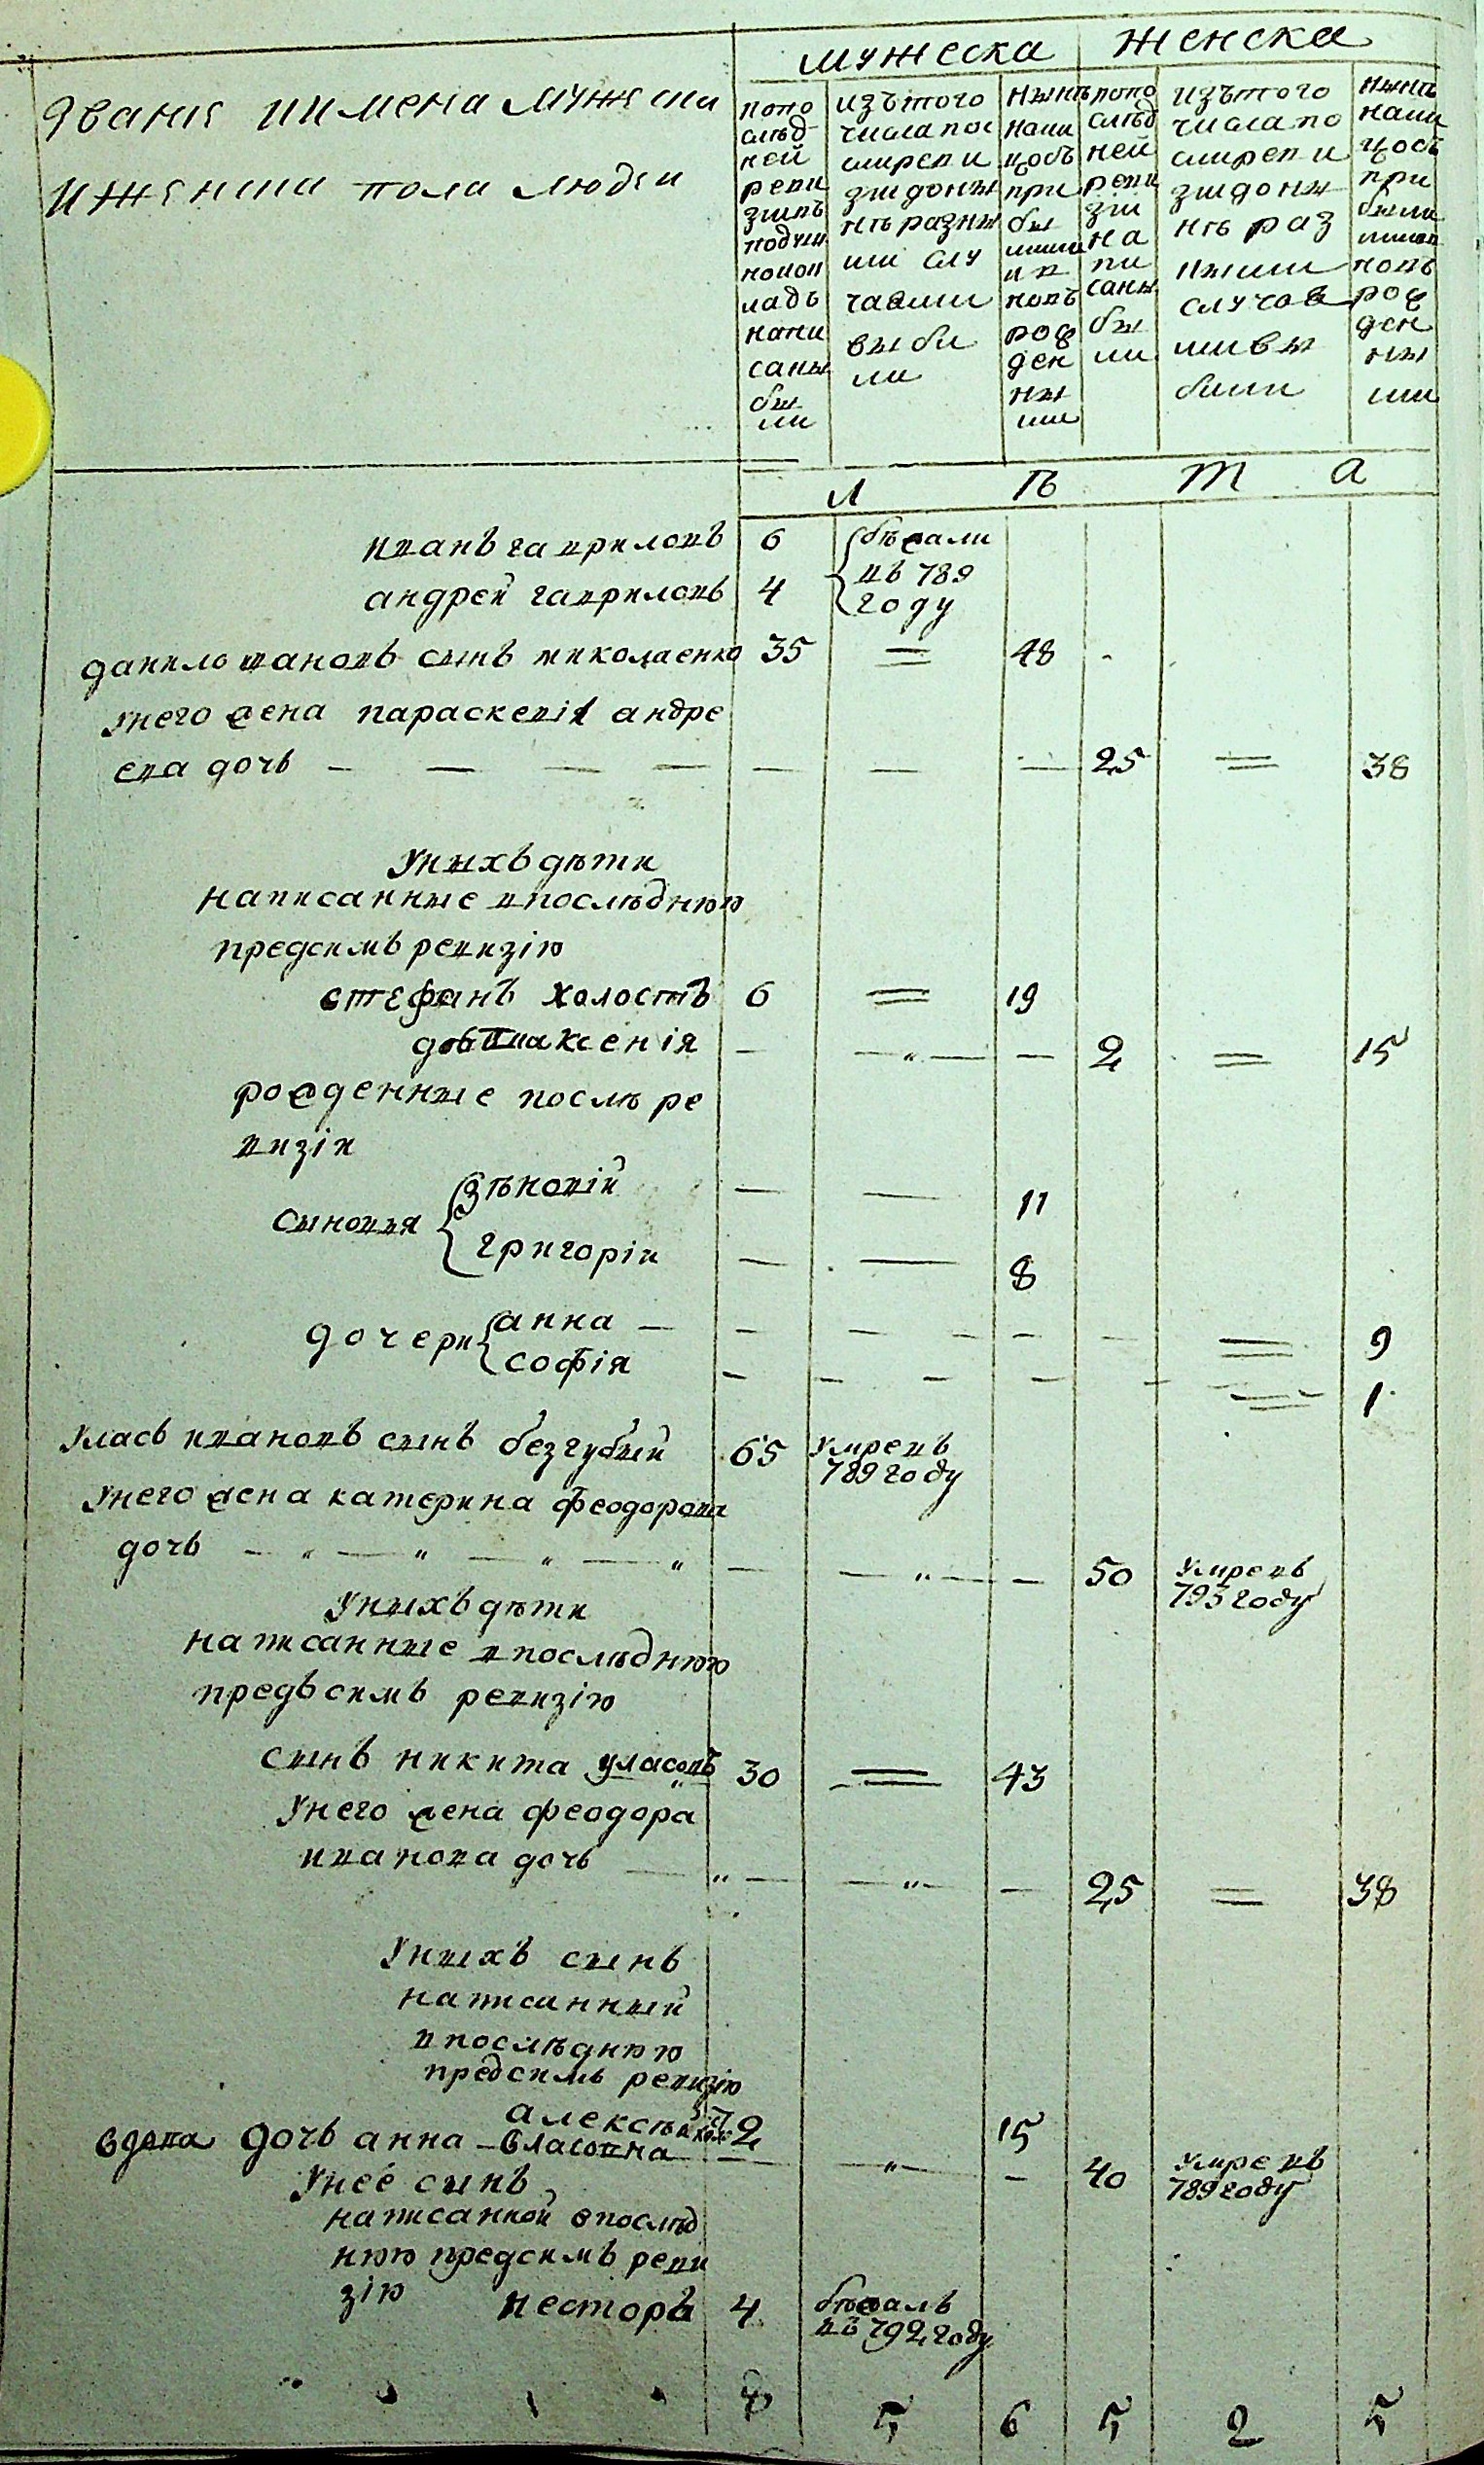 мужеска женска
Званія иимена мужеска
иженска пола людеи
попо
слѣд
ней
реви
зіивъ
подуш
номок
ладѣ
напи
саны
бы
ли
изътого
числа пос
лиреви
зіидоны
нѣразны
ми слу
чаями
выбы
ли
нынѣ
нали
цобъ
при
бы
лыми
ив
новъ
рож
ден
ны
ми
попо
слѣд
ней
реви
зіи
на
пи
саны
бы
ли
изътого
числа по
слиреви
зіидоны
нѣ раз
ными
случая
мивы
были
нынѣ
нали
цобъ
при
былы
мии
новъ
рож
ден
ны
ми
Л ѣ т а
иванъ гавриловъ 6 бѣжали
въ 789
году
андрей гавриловъ 4
данило ивановъ сынъ николаенко 35 = 48
унего жена параскевія андре
ева дочь — — — — — — — 25 = 38
Унихъ дѣти
написанные впослѣднюю
предсимъ ревизію
стефанъ холостъ 6 = 19
дочь ксенія — — " — — 2 = 15
рожденные послѣ ре
визіи
сыновья зѣновій — — 11
григорій — — 8
дочери анна — — — — — — = 9
софія — — — — — = 1
Уласъ ивановъ сынъ безгубый 65 Умревъ
789 году
Унего жена катерина феодорова
дочь — " — " — " — " — — " — — 50 Умревъ
793 году
Унихъ дѣти
написанные впослѣднюю
предъсимъ ревизію
сынъ никита уласовъ 30 = 43
Унего жена феодора
иванова дочь — " — — " — — 25 = 38
Унихъ сынъ
написанный
впослѣднюю
предсимъ ревизію
алексѣй 2 15
вдова дочь анна — власовна — — " — — 40 Умревъ
789 году
Унеё сынъ
написанной впослѣд
нюю предсимъ реви
зію несторъ 4 бѣжалъ
въ 792 году
5 6 5 2 5